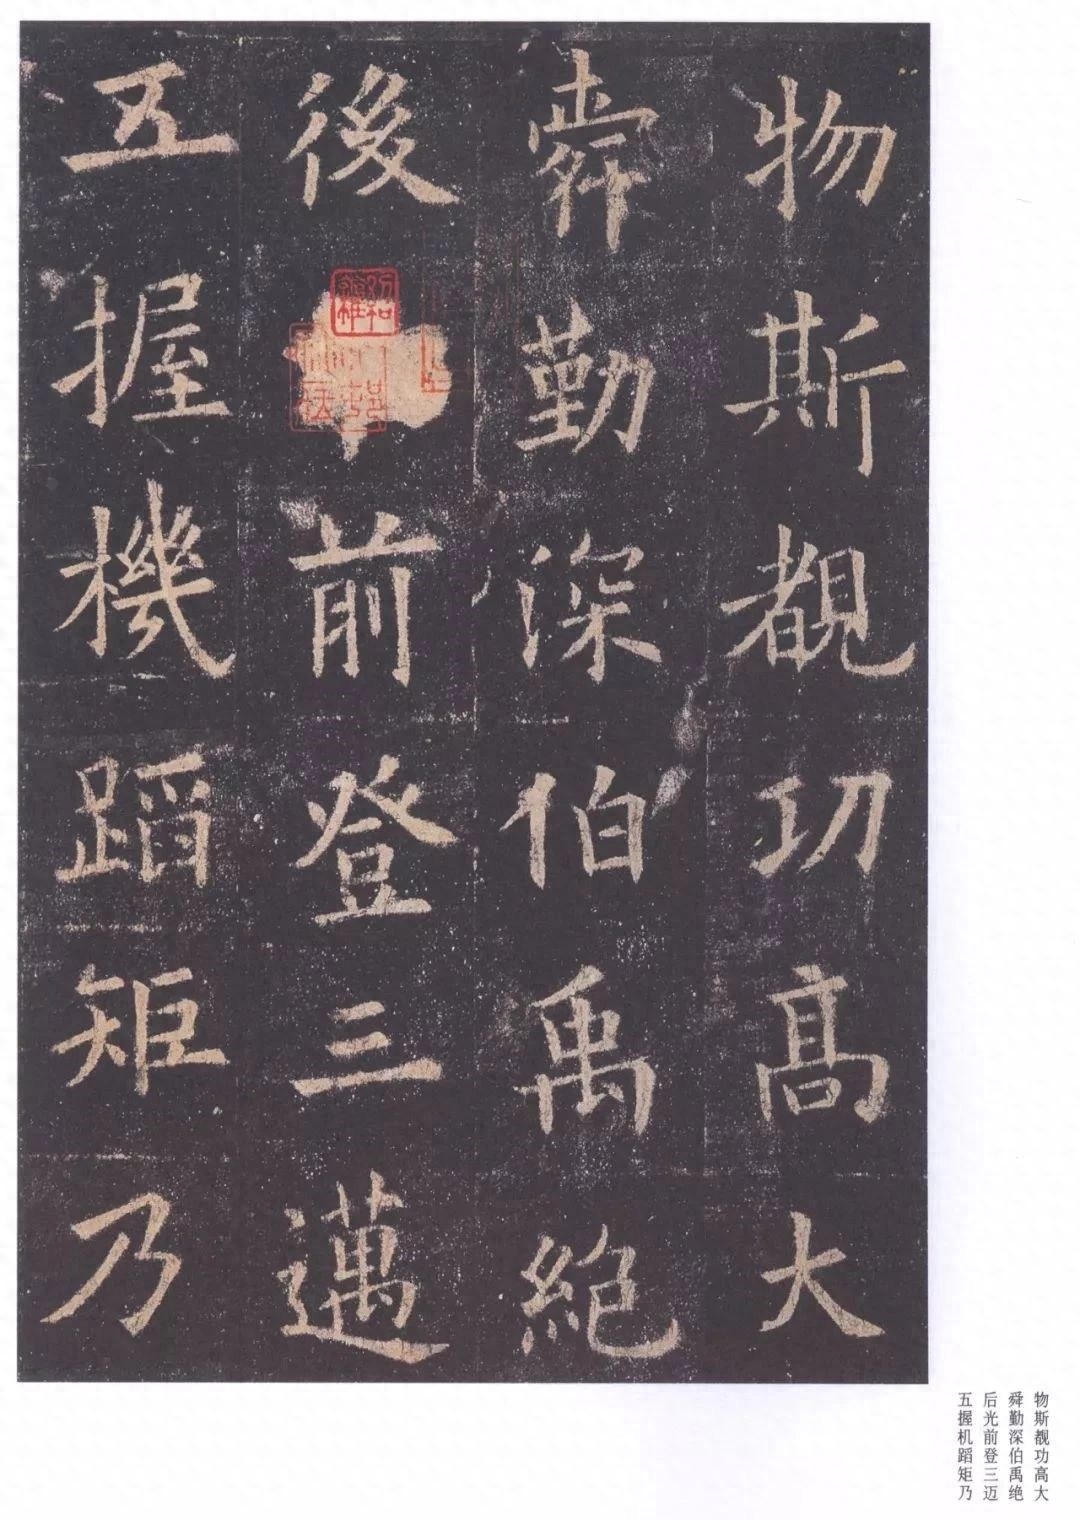 物斯覩功高大
舜勤深伯禹絶
後前登三邁
五握機蹈矩乃
物斯覩功高大
舜勤深伯禹绝
后光前登三迈
五握机蹈矩乃